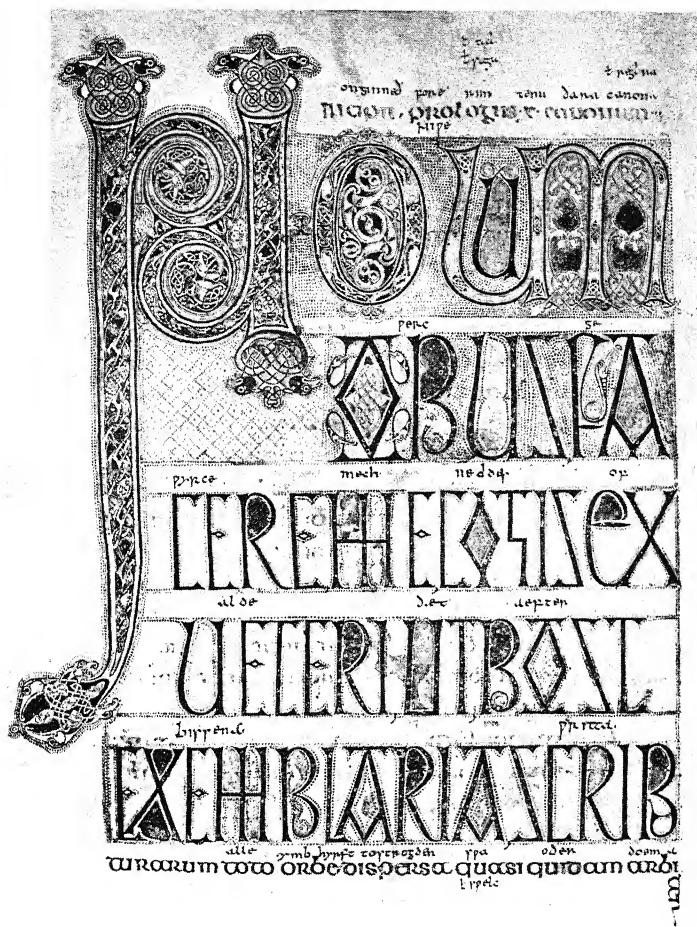 ł regula
onginneð fore rim tenu ðara canona
INCIPIT PROLOGUS X CANONUM
niwe
NOUUM
werc ge
OPUS FA
wyrce mech of
CERE ME COGIS EX
alde ðæt aefter
UETERI UT POST
EXEMPLARIA SCRIP
alle ymb hyrft tostrogden swa doema
turarum toto orbe dispersa quasi quidam arbi
ł swelc
ter